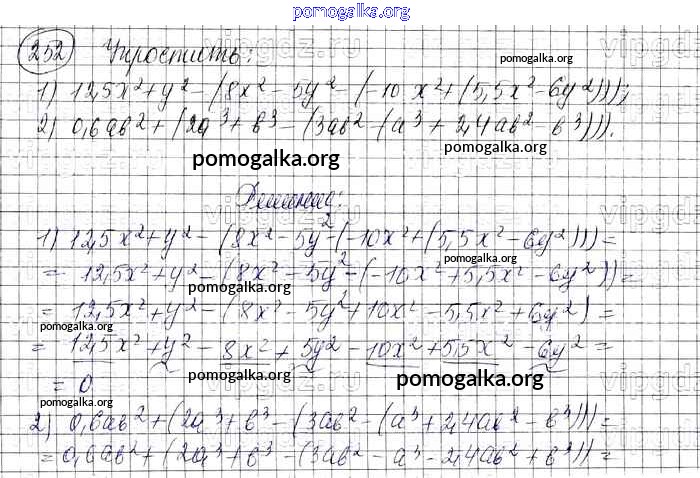 pomogalka.org
252 Упростить:
pomogalka.org
vipgdz.ru
1) 12,5x² + y² - (8x² - 5y² - (-10x² + (5,5x² - 6y²)));
2) 0,6ab² + (2a³ + b³ - (3ab² - (a³ + 2,4ab² - b³))).
pomogalka.org
pomogalka.org
Решение:
vipgdz.ru
1) 12,5x² + y² - (8x² - 5y² - (-10x² + (5,5x² - 6y²))) =
pomogalka.org
= 12,5x² + y² - (8x² - 5y² - (-10x² + 5,5x² - 6y²)) =
pomogalka.org
= 12,5x² + y² - (8x² - 5y² + 10x² - 5,5x² + 6y²) =
pomogalka.org
pomogalka.org
= 12,5x² + y² - 8x² + 5y² - 10x² + 5,5x² - 6y² =
pomogalka.org
= 0.
pomogalka.org
vipgdz.ru
pomogalka.org
2) 0,6ab² + (2a³ + b³ - (3ab² - (a³ + 2,4ab² - b³))) =
= 0,6ab² + (2a³ + b³ - (3ab² - a³ - 2,4ab² + b³)) =